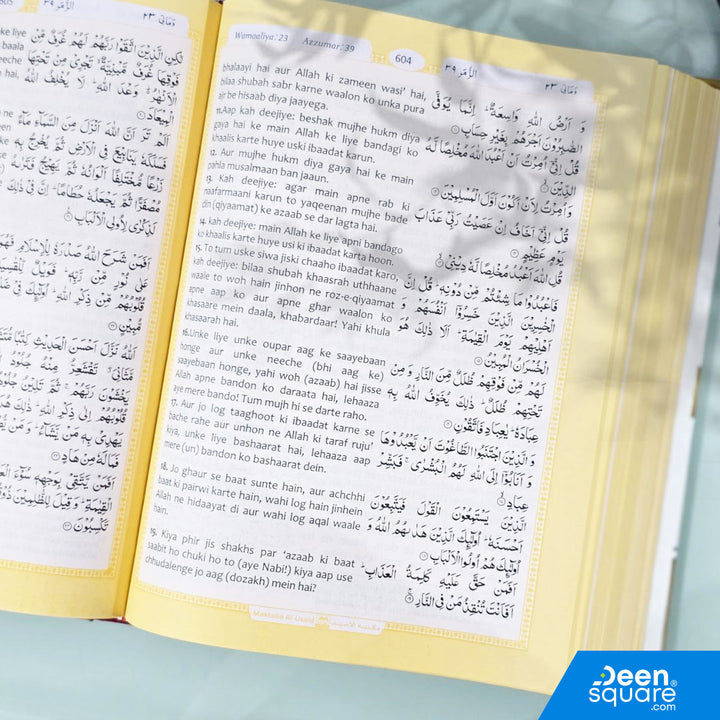 Wamaaliya:23
Azzumar:39
604
الزُّمَر ٣٩
وَمَالِيَ ٢٣
bhalaayi hai aur Allah ki zameen wasi' hai,
bilaa shubah sabr karne waalon ko unka pura
ajr be hisaab diya jaayega.
11.Aap kah deejiye: beshak mujhe hukm diya
gaya hai ke main Allah ke liye bandagi ko
khaalis karte huye uski ibaadat karun.
12. Aur mujhe hukm diya gaya hai ke main
pahla musalmaan ban jaaun.
13. Kah deejiye: agar main apne rab ki
naafarmaani karun to yaqeenan mujhe bade
din (qiyaamat) ke azaab se dar lagta hai.
14. kah deejiye: main Allah ke liye apni bandago
ko khaalis karte huye usi ki ibaadat karta hoon.
15. To tum uske siwa jiski chaaho ibaadat karo,
kah deejiye: bilaa shubah khaasrah uthhaane
waale to woh hain jinhon ne roz-e-qiyaamat
apne aap ko aur apne ghar waalon ko
khasaare mein daala, khabardaar! Yahi khula
khasaarah hai.
16.Unke liye unke oupar aag ke saayebaan
honge aur unke neeche (bhi aag ke)
saayebaan honge, yahi woh (azaab) hai jisse
Allah apne bandon ko daraata hai, lehaaza
aye mere bando! Tum mujh hi se darte raho.
17. Aur jo log taaghoot ki ibaadat karne se
bache rahe aur unhon ne Allah ki taraf ruju'
kiya, unke liye bashaarat hai, lehaaza aap
mere (un) bandon ko bashaarat dein.
18. Jo ghaur se baat sunte hain, aur achchhi
baat ki pairwi karte hain, wahi log hain jinhein
Allah ne hidaayat di aur wahi log aqal waale
hain.
19. Kiya phir jis shakhs par 'azaab ki baat
saabit ho chuki ho to (aye Nabi!) kiya aap use
chhudalenge jo aag (dozakh) mein hai?
وَ اَرْضُ اللهِ وَاسِعَةٌ ؕ اِنَّمَا يُوَفَّى
الصّٰبِرُوْنَ اَجْرَهُمْ بِغَيْرِ حِسَابٍ
قُلْ اِنِّيْۤ اُمِرْتُ اَنْ اَعْبُدَ اللهَ مُخْلِصًا لَّهُ
الدِّيْنَ
وَ اُمِرْتُ لِاَنْ اَكُوْنَ اَوَّلَ الْمُسْلِمِيْنَ
قُلْ اِنِّيْۤ اَخَافُ اِنْ عَصَيْتُ رَبِّيْ عَذَابَ
يَوْمٍ عَظِيْمٍ
قُلِ اللهَ اَعْبُدُ مُخْلِصًا لَّهٗ دِيْنِيْ
فَاعْبُدُوْا مَا شِئْتُمْ مِّنْ دُوْنِهٖ ؕ قُلْ اِنَّ
الْخٰسِرِيْنَ الَّذِيْنَ خَسِرُوْۤا اَنْفُسَهُمْ وَ
اَهْلِيْهِمْ يَوْمَ الْقِيٰمَةِ ؕ اَلَا ذٰلِكَ هُوَ
الْخُسْرَانُ الْمُبِيْنُ
لَهُمْ مِّنْ فَوْقِهِمْ ظُلَلٌ مِّنَ النَّارِ وَ مِنْ
تَحْتِهِمْ ظُلَلٌ ؕ ذٰلِكَ يُخَوِّفُ اللهُ بِهٖ
عِبَادَهٗ ؕ يٰعِبَادِ فَاتَّقُوْنِ
وَ الَّذِيْنَ اجْتَنَبُوا الطَّاغُوْتَ اَنْ يَّعْبُدُوْهَا
وَ اَنَابُوْۤا اِلَى اللهِ لَهُمُ الْبُشْرٰى ۚ فَبَشِّرْ
عِبَادِ
الَّذِيْنَ يَسْتَمِعُوْنَ الْقَوْلَ فَيَتَّبِعُوْنَ
اَحْسَنَهٗ ؕ اُولٰٓئِكَ الَّذِيْنَ هَدٰىهُمُ اللهُ وَ
اُولٰٓئِكَ هُمْ اُولُوا الْاَلْبَابِ
اَفَمَنْ حَقَّ عَلَيْهِ كَلِمَةُ الْعَذَابِ ؕ
اَفَاَنْتَ تُنْقِذُ مَنْ فِي النَّارِ
Maktaba Al-Usaid
الزُّمَر ٣٩
وَمَالِيَ ٢٣
لٰكِنِ الَّذِيْنَ اتَّقَوْا رَبَّهُمْ لَهُمْ غُرَفٌ مِّنْ
فَوْقِهَا غُرَفٌ مَّبْنِيَّةٌ ۙ تَجْرِيْ مِنْ تَحْتِهَا
الْاَنْهٰرُ ؕ وَعْدَ اللهِ ؕ لَا يُخْلِفُ اللهُ
الْمِيْعَادَ
اَلَمْ تَرَ اَنَّ اللهَ اَنْزَلَ مِنَ السَّمَآءِ مَآءً
فَسَلَكَهٗ يَنَابِيْعَ فِي الْاَرْضِ ثُمَّ يُخْرِجُ بِهٖ
زَرْعًا مُّخْتَلِفًا اَلْوَانُهٗ ثُمَّ يَهِيْجُ فَتَرٰىهُ
مُصْفَرًّا ثُمَّ يَجْعَلُهٗ حُطَامًا ؕ اِنَّ فِيْ ذٰلِكَ
لَذِكْرٰى لِاُولِي الْاَلْبَابِ
اَفَمَنْ شَرَحَ اللهُ صَدْرَهٗ لِلْاِسْلَامِ فَهُوَ
عَلٰى نُوْرٍ مِّنْ رَّبِّهٖ ؕ فَوَيْلٌ لِّلْقٰسِيَةِ
قُلُوْبُهُمْ مِّنْ ذِكْرِ اللهِ ؕ اُولٰٓئِكَ فِيْ ضَلٰلٍ
مُّبِيْنٍ
اَللهُ نَزَّلَ اَحْسَنَ الْحَدِيْثِ كِتٰبًا مُّتَشَابِهًا
مَّثَانِيَ ۖ تَقْشَعِرُّ مِنْهُ جُلُوْدُ الَّذِيْنَ
يَخْشَوْنَ رَبَّهُمْ ۚ ثُمَّ تَلِيْنُ جُلُوْدُهُمْ وَ
قُلُوْبُهُمْ اِلٰى ذِكْرِ اللهِ ؕ ذٰلِكَ هُدَى اللهِ
يَهْدِيْ بِهٖ مَنْ يَّشَآءُ ؕ وَ مَنْ يُّضْلِلِ اللهُ
فَمَا لَهٗ مِنْ هَادٍ
اَفَمَنْ يَّتَّقِيْ بِوَجْهِهٖ سُوْٓءَ الْعَذَابِ يَوْمَ
الْقِيٰمَةِ ؕ وَ قِيْلَ لِلظّٰلِمِيْنَ ذُوْقُوْا
تَكْسِبُوْنَ
Deen
square
.com